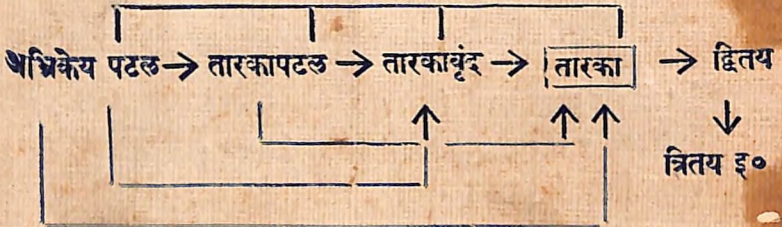 अभ्रिकेय पटल → तारकापटल → तारकावृंद → तारका → द्वितय
त्रितय इ०